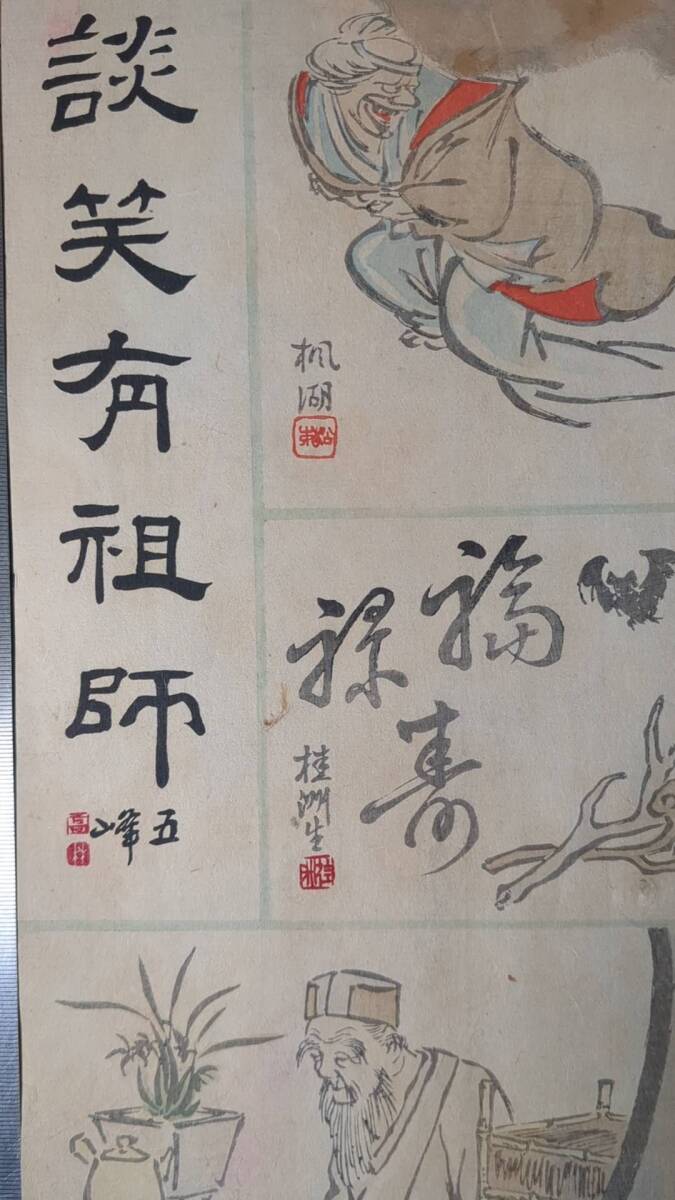 談笑有祖師
五峰
楓湖
福
祿
壽
桂洲生